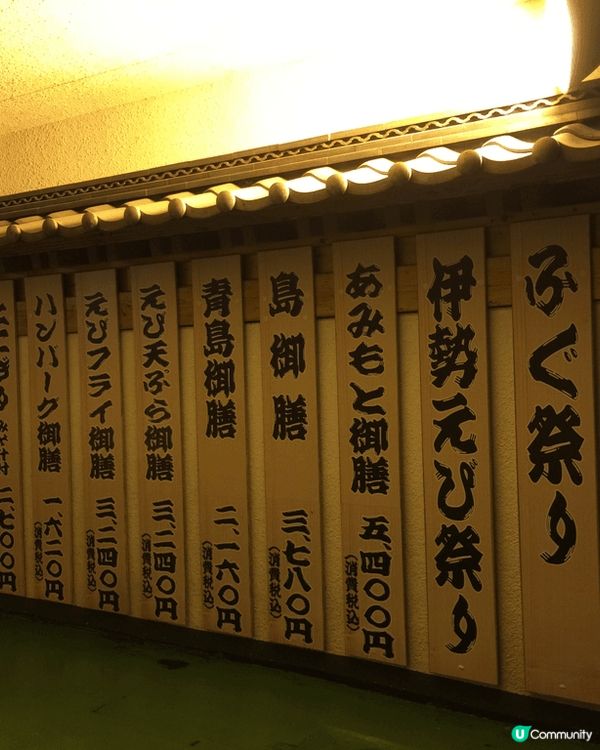 ふぐ祭り
伊勢えび祭り
あみもと御膳 五、四〇〇円
(消費税込)
島御膳 三、七八〇円
(消費税込)
青島御膳 二、一六〇円
(消費税込)
えび天ぷら御膳 三、二四〇円
(消費税込)
えびフライ御膳 三、二四〇円
(消費税込)
ハンバーグ御膳 一、六二〇円
(消費税込)
二、七〇〇円
U Community